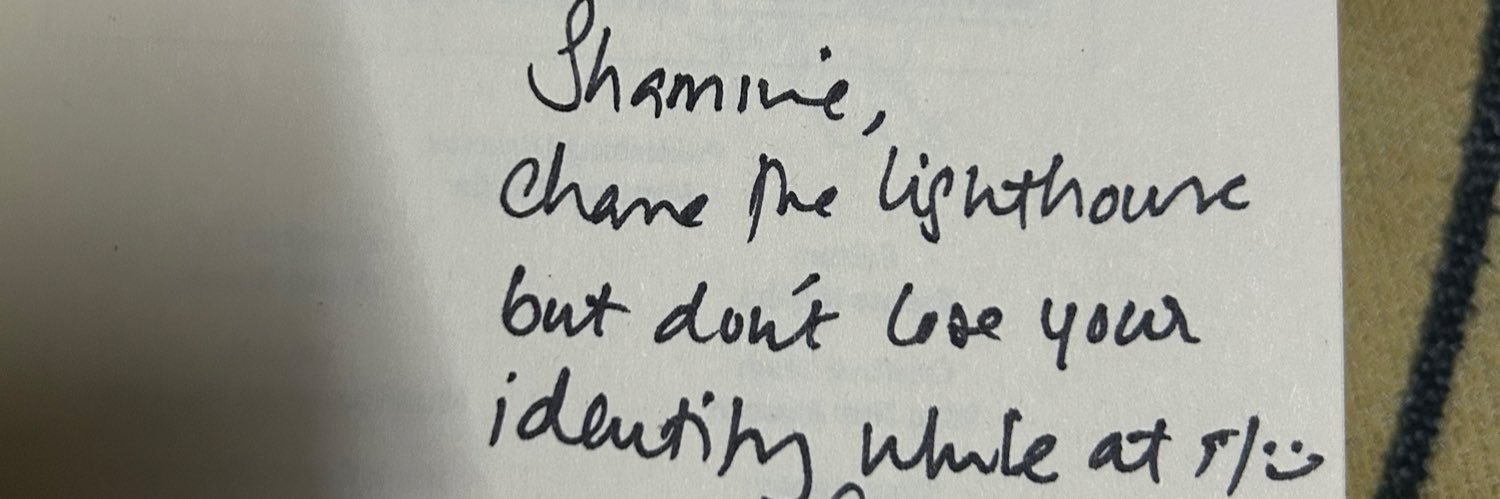 Shamine,
chase the lighthouse
but don't lose your
identity while at it! :)